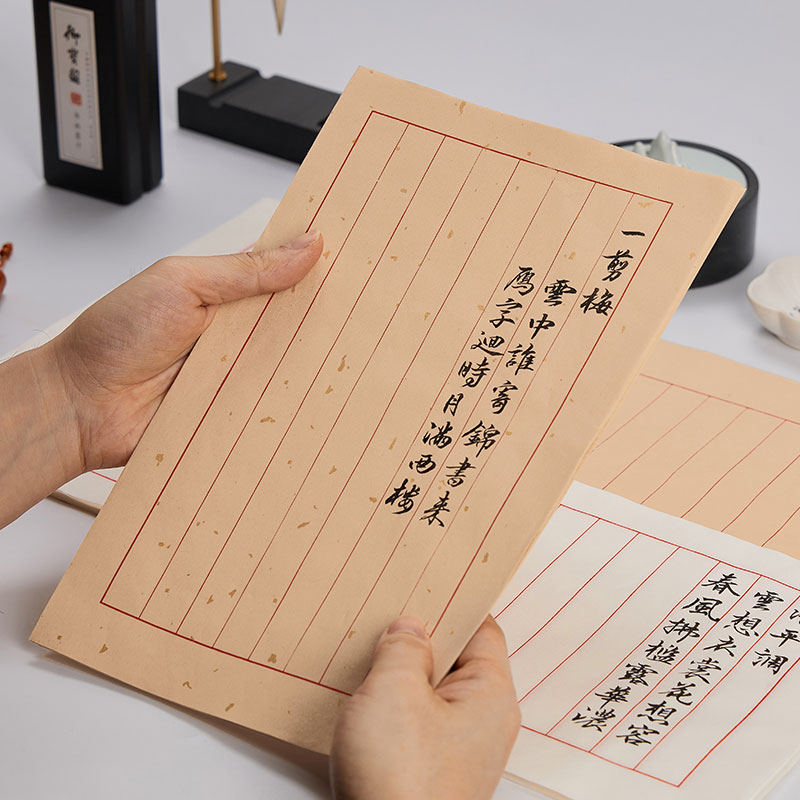 一剪梅
雲中誰寄錦書来
鴈字迴時月滿西楼
清平調
雲想衣裳花想容
春風拂檻露華濃